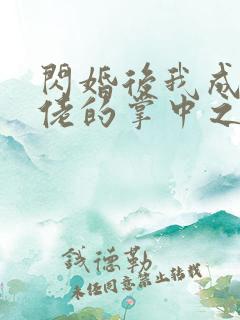 閃婚後我成
佬的掌中之
錢德勒
未經同意禁止轉載